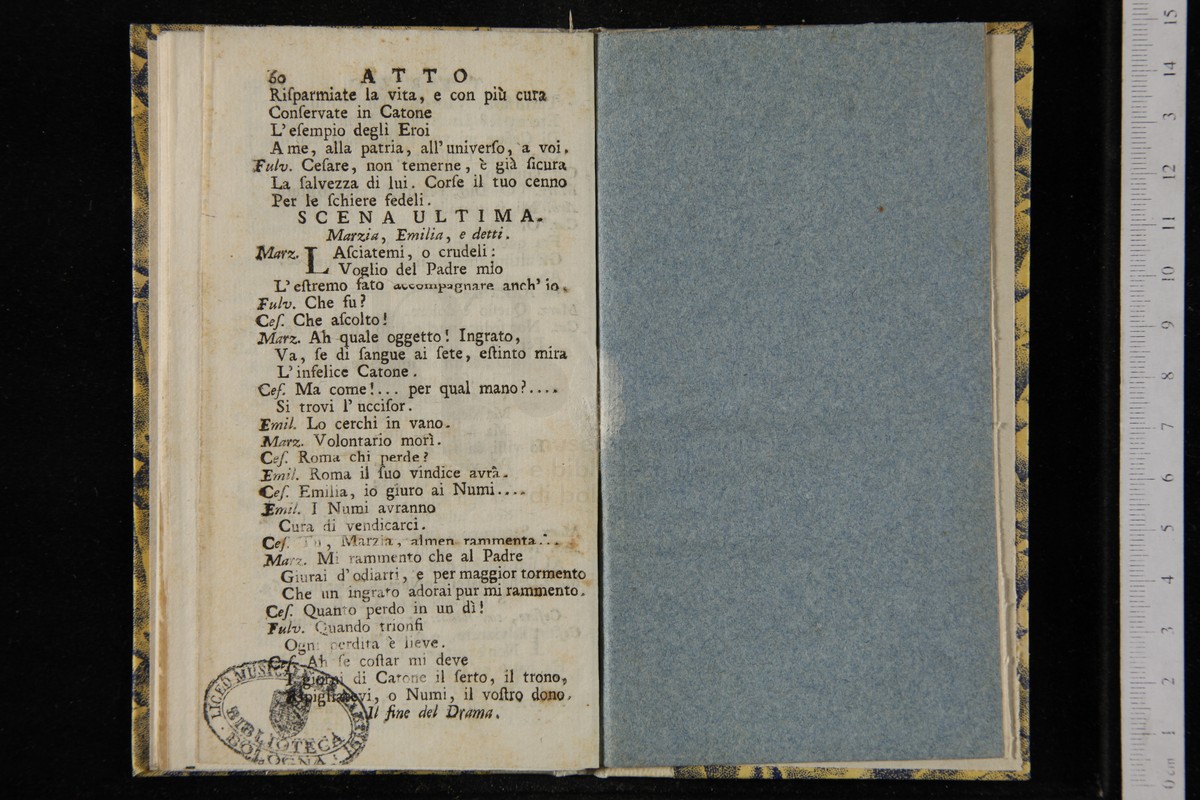 60 ATTO
Riſparmiate la vita, e con più cura
Conſervate in Catone
L'eſempio degli Eroi
A me, alla patria, all'univerſo, a voi.
Fulv. Ceſare, non temerne, è già ſicura
La ſalvezza di lui. Corſe il tuo cenno
Per le ſchiere fedeli.
SCENA ULTIMA.
Marzia, Emilia, e detti.
Marz. LAſciatemi, o crudeli:
Voglio del Padre mio
L'eſtremo fato accompagnare anch'io.
Fulv. Che fu?
Ceſ. Che aſcolto!
Marz. Ah quale oggetto! Ingrato,
Va, ſe di ſangue ai ſete, eſtinto mira
L'infelice Catone.
Ceſ. Ma come!... per qual mano?....
Si trovi l'ucciſor.
Emil. Lo cerchi in vano.
Marz. Volontario morì.
Ceſ. Roma chi perde?
Emil. Roma il ſuo vindice avrà.
Ceſ. Emilia, io giuro ai Numi....
Emil. I Numi avranno
Cura di vendicarci.
Ceſ. Tu, Marzia, almen rammenta...
Marz. Mi rammento che al Padre
Giurai d'odiarti, e per maggior tormento
Che un ingrato adorai pur mi rammento.
Ceſ. Quanto perdo in un dì!
Fulv. Quando trionfi
Ogni perdita è lieve.
Ceſ. Ah ſe coſtar mi deve
I giorni di Catone il ſerto, il trono,
Ripigliatevi, o Numi, il voſtro dono.
Il fine del Drama.
LICEO MUSICALE
BIBLIOTECA
BOLOGNA
15
14
13
12
11
10
9
8
7
6
5
4
3
2
1
0 cm